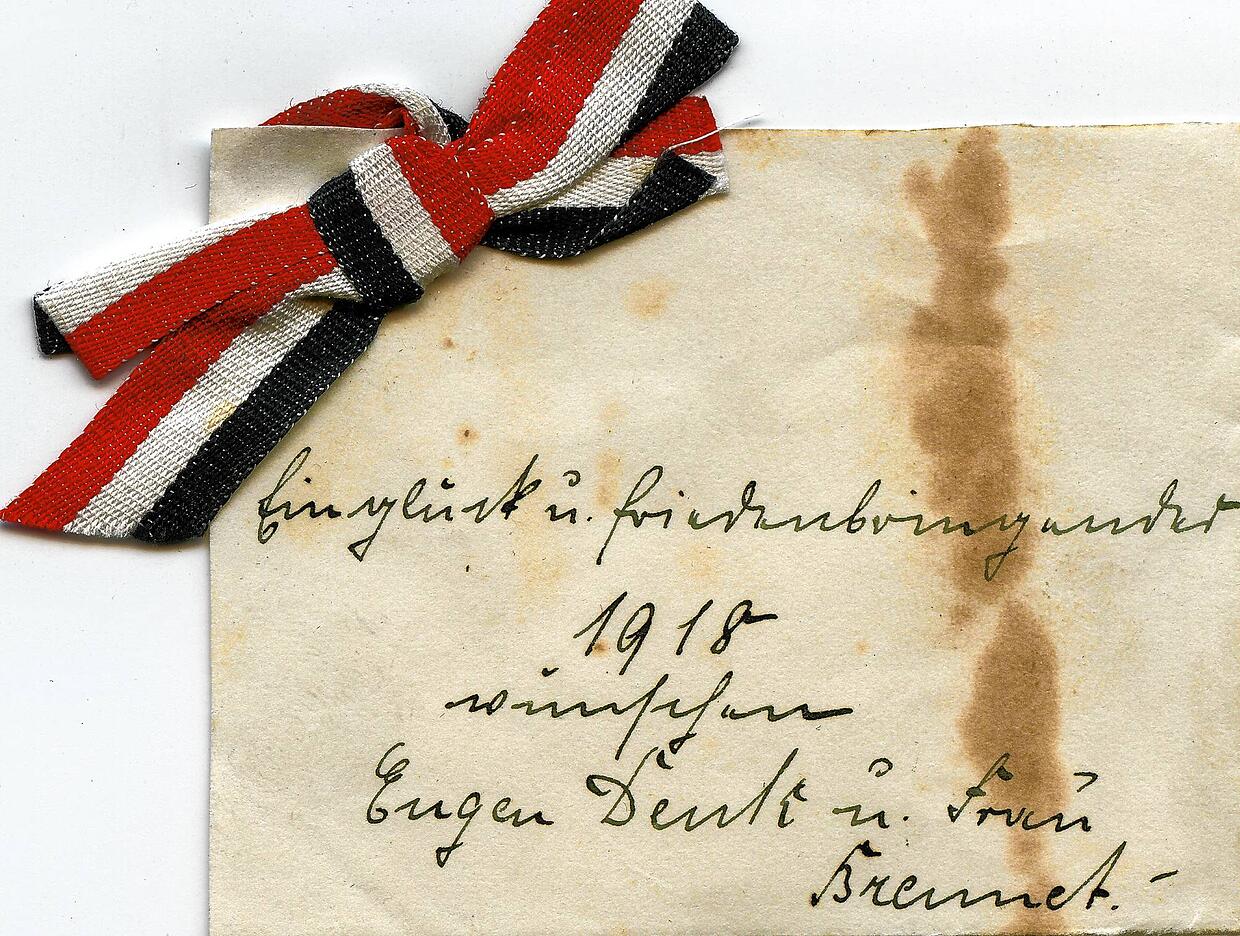 Ein glück u. friedenbringendes
1918
wünschen
Eugen Denk u. Frau
Brennet.-